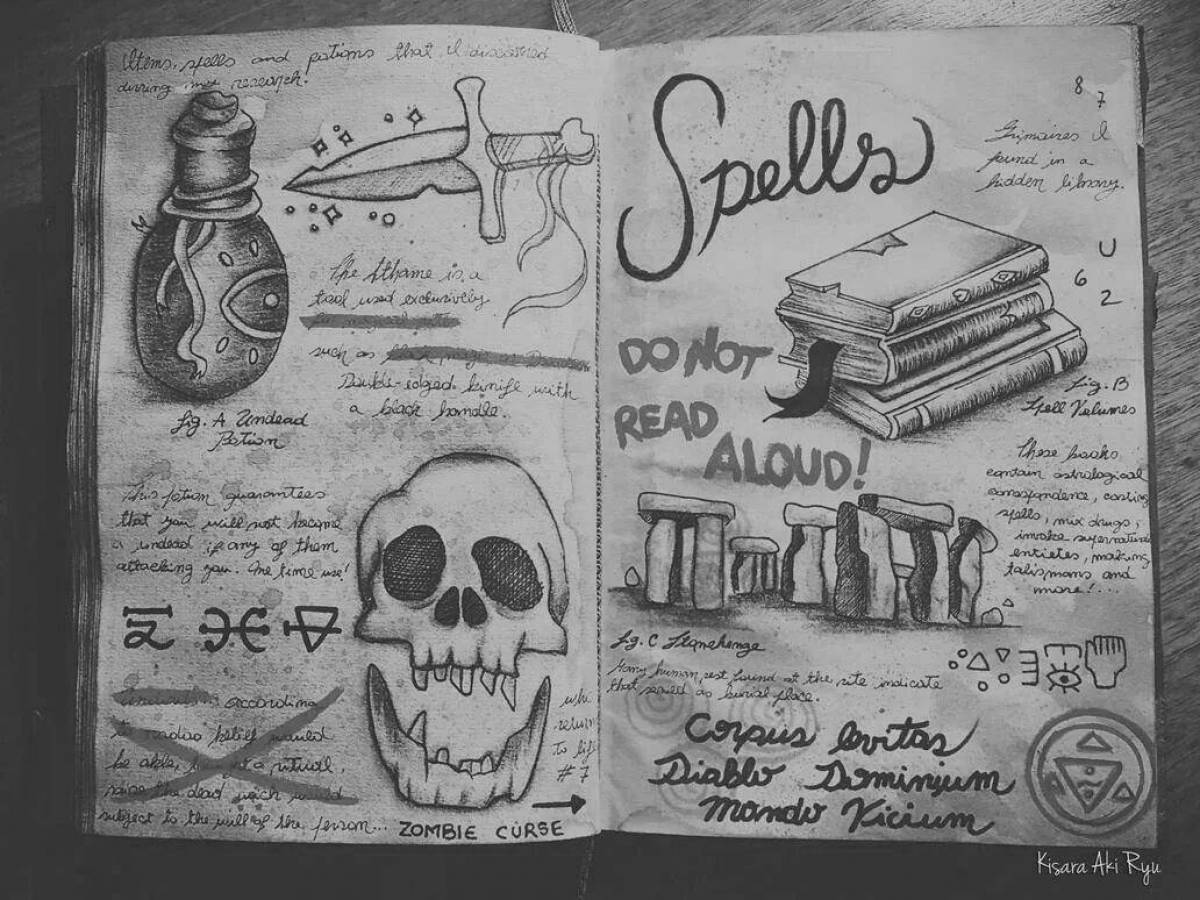 Items, spells and potions that I discovered
durring my research!
The Athame is a
tool used exclusively
such as
Double-edged knife with
a black handle.
fig. A Undead
Potion
This potion guarantees
that you will not become
a undead if any of them
attacking you. One time use!
according
to vodoo belief would
be able, ritual,
raise the dead wich would
subject to the will of the person...
ZOMBIE CURSE
who
return
to life
#7
Spells
8
7
Grimoires I
found in a
hidden library.
U
6
2
DO NOT
READ
ALOUD!
fig. B
Spell Volumes
These books
contain astrological
correspondence, casting
spells, mix drugs,
invoke supernatural
entieties, making
talismans and
more!...
fig. C Stonehenge
Many human rest found at the site indicate
that served as burial place.
Corpus levitas
Diablo Dominium
Mondo Vicium
Kisara Aki Ryu